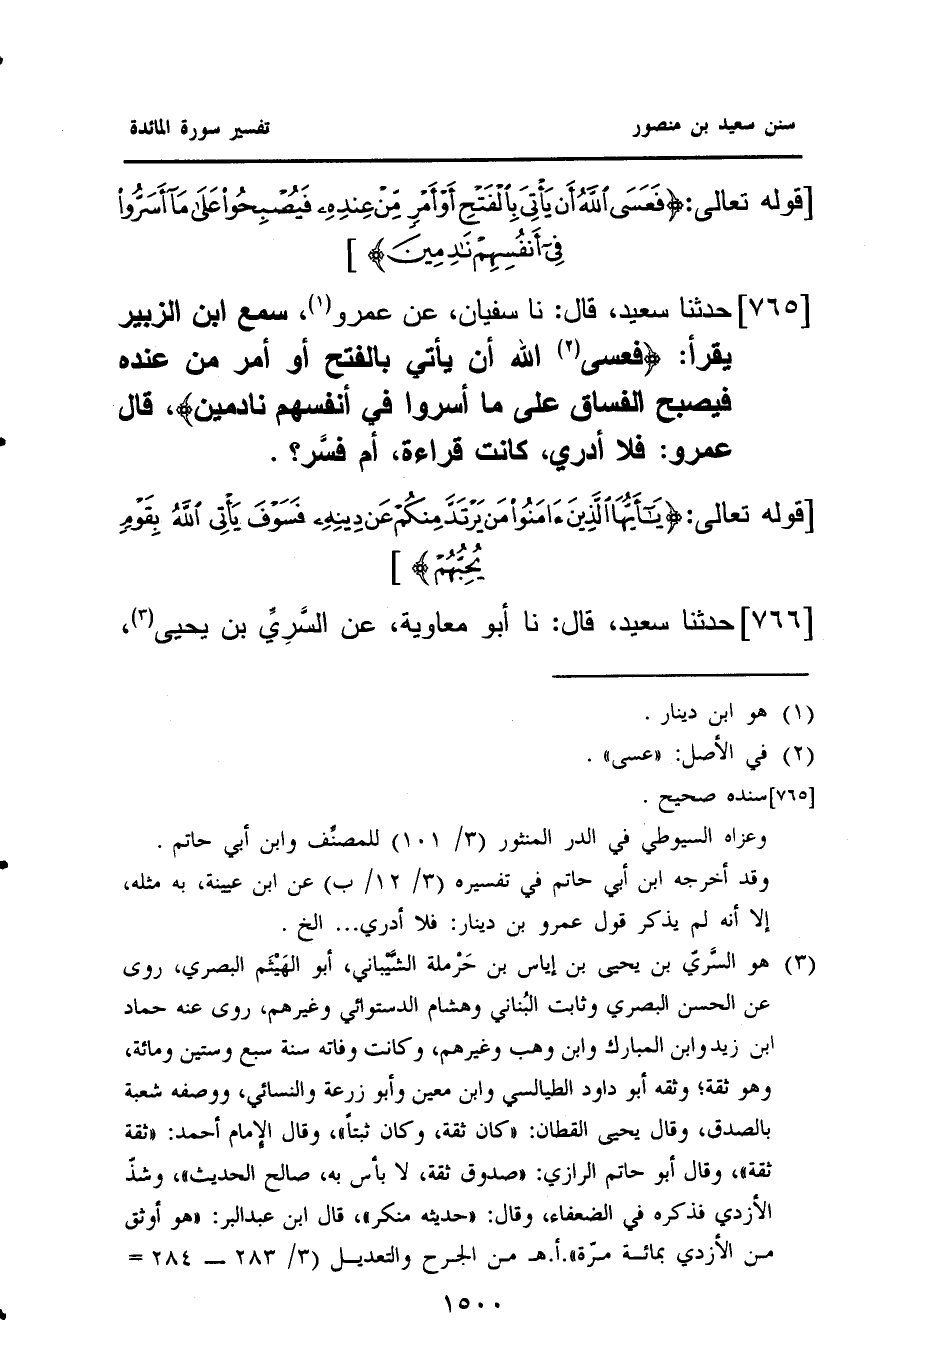 سنن سعيد بن منصور
تفسير سورة المائدة
[قوله تعالى: ﴿فَعَسَى ٱللَّهُ أَن يَأْتِيَ بِٱلْفَتْحِ أَوْ أَمْرٍ مِّنْ عِندِهِۦ فَيُصْبِحُوا۟ عَلَىٰ مَآ أَسَرُّوا۟
فِىٓ أَنفُسِهِمْ نَٰدِمِينَ﴾ ]
[٧٦٥] حدثنا سعيد، قال: نا سفيان، عن عمرو(١)، سمع ابن الزبير
يقرأ: ﴿فعسى(٢) الله أن يأتي بالفتح أو أمر من عنده
فيصبح الفساق على ما أسروا في أنفسهم نادمين﴾، قال
عمرو: فلا أدري، كانت قراءة، أم فسَّر؟ .
[قوله تعالى: ﴿يَٰٓأَيُّهَا ٱلَّذِينَ ءَامَنُوا۟ مَن يَرْتَدَّ مِنكُمْ عَن دِينِهِۦ فَسَوْفَ يَأْتِى ٱللَّهُ بِقَوْمٍ
يُحِبُّهُمْ﴾ ]
[٧٦٦] حدثنا سعيد، قال: نا أبو معاوية، عن السَّرِيِّ بن يحيى(٣)،
(١) هو ابن دينار .
(٢) في الأصل: «عسى» .
[٧٦٥] سنده صحيح .
وعزاه السيوطي في الدر المنثور (٣/ ١٠١) للمصنِّف وابن أبي حاتم .
وقد أخرجه ابن أبي حاتم في تفسيره (٣/ ١٢/ ب) عن ابن عيينة، به مثله،
إلا أنه لم يذكر قول عمرو بن دينار: فلا أدري... الخ .
(٣) هو السَّريّ بن يحيى بن إياس بن حَرْملة الشَّيْباني، أبو الهَيْثَم البصري، روى
عن الحسن البصري وثابت البُناني وهشام الدستوائي وغيرهم، روى عنه حماد
ابن زيد وابن المبارك وابن وهب وغيرهم، وكانت وفاته سنة سبع وستين ومائة،
وهو ثقة؛ وثقه أبو داود الطيالسي وابن معين وأبو زرعة والنسائي، ووصفه شعبة
بالصدق، وقال يحيى القطان: «كان ثقة، وكان ثبتاً»، وقال الإمام أحمد: «ثقة
ثقة»، وقال أبو حاتم الرازي: «صدوق ثقة، لا بأس به، صالح الحديث»، وشذّ
الأزدي فذكره في الضعفاء، وقال: «حديثه منكر»، قال ابن عبدالبر: «هو أوثق
من الأزدي بمائة مرّة».أ.هـ من الجرح والتعديل (٣/ ٢٨٣ ــ ٢٨٤ =
١٥٠٠